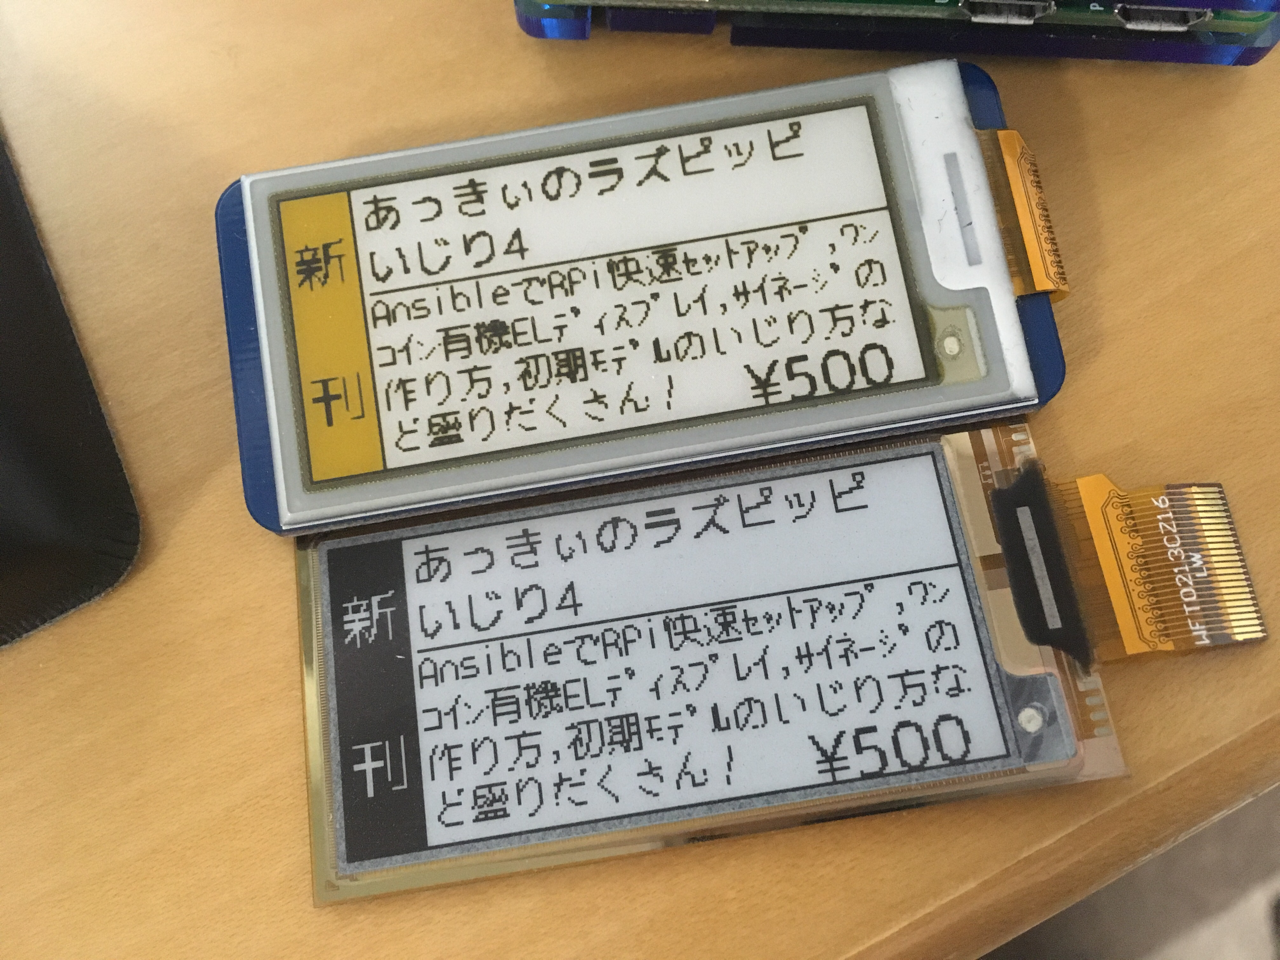 新刊
あっきぃのラズピッピ
いじり4
AnsibleでRPi快速ｾｯﾄｱｯﾌﾟ,ﾜﾝ
ｺｲﾝ有機ELﾃﾞｨｽﾌﾟﾚｲ,ｻｲﾈｰｼﾞの
作り方,初期ﾓﾃﾞﾙのいじり方な
ど盛りだくさん!
¥500
新刊
あっきぃのラズピッピ
いじり4
AnsibleでRPi快速ｾｯﾄｱｯﾌﾟ,ﾜﾝ
ｺｲﾝ有機ELﾃﾞｨｽﾌﾟﾚｲ,ｻｲﾈｰｼﾞの
作り方,初期ﾓﾃﾞﾙのいじり方な
ど盛りだくさん!
¥500
WFT0213CZ16
LW